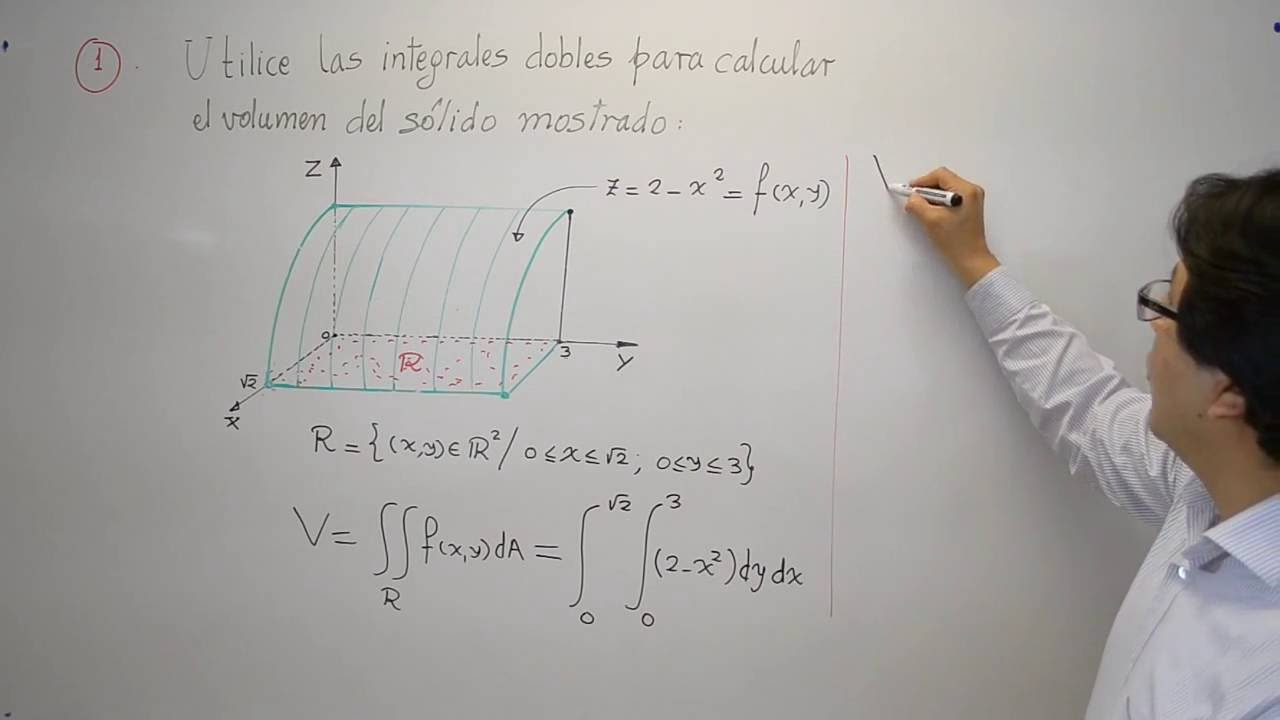 1. Utilice las integrales dobles para calcular
el volumen del sólido mostrado:
Z
z = 2 - x² = f(x,y)
0
R
3
y
√2
x
R = {(x,y) ∈ ℝ² / 0 ≤ x ≤ √2; 0 ≤ y ≤ 3}
V = ∬_R f(x,y) dA = ∫₀^√2 ∫₀³ (2 - x²) dy dx